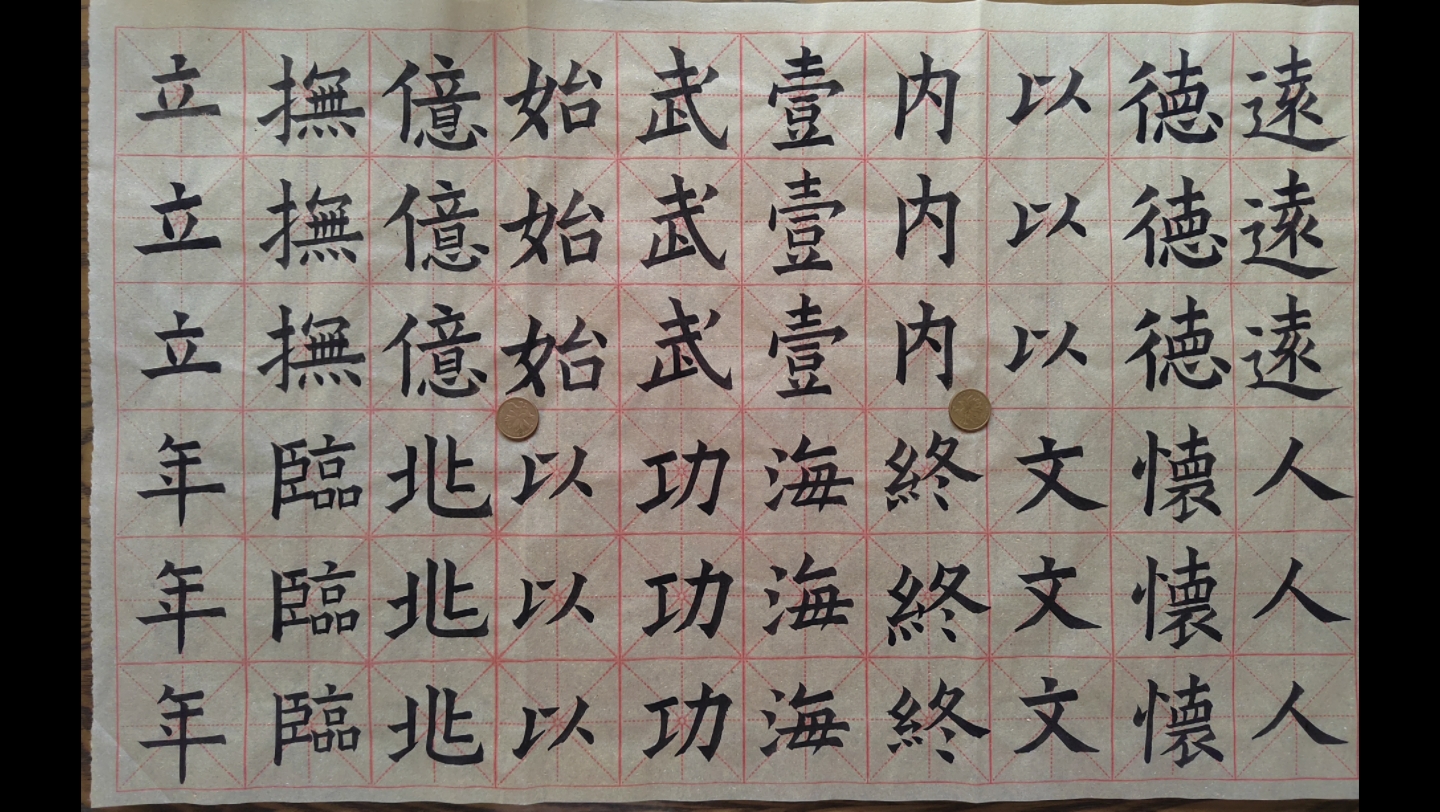 立立立年年年
撫撫撫臨臨臨
億億億兆兆兆
始始始以以以
武武武功功功
壹壹壹海海海
内内内終終終
以以以文文文
德德德懷懷懷
遠遠遠人人人